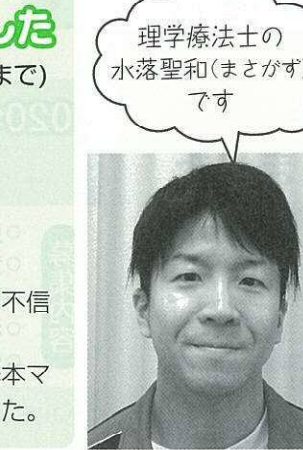 した
まで)
不信
本マ
た。
理学療法士の
水落聖和(まさかず)
です